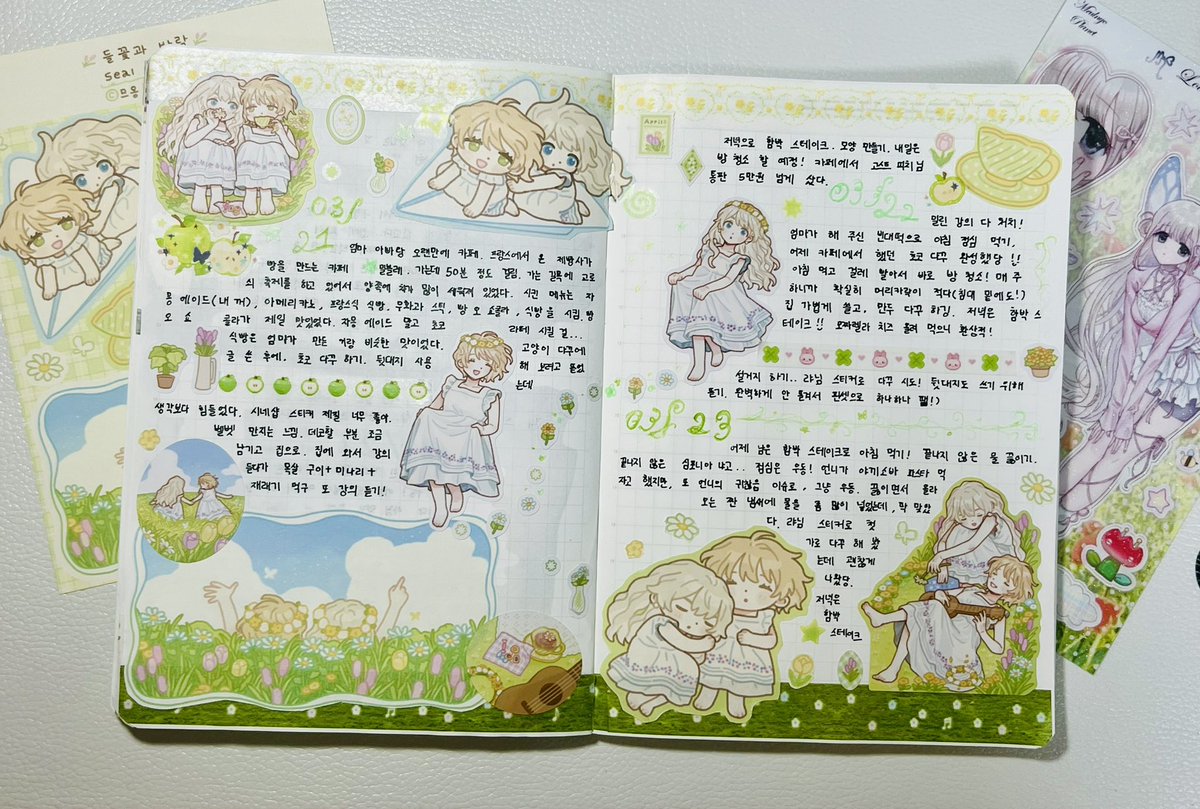 들꽃과 바람
Seal
©므옹
03/
21
엄마 아빠랑 오랜만에 카페. 프랑스에서 온 제빵사가
빵을 만드는 카페 몽블레. 가는데 50분 정도 걸림. 가는 길목에 고로
쇠 축제를 하고 있어서 양쪽에 차가 많이 세워져 있었다. 시킨 메뉴는 자
몽 에이드(내 꺼), 아메리카노, 프랑스식 식빵, 무화과 스틱, 빵 오 쇼콜라, 식빵을 시킴. 빵
오 쇼콜라가 제일 맛있었다. 자몽 에이드 말고 초코
라떼 시킬 걸...
식빵은 엄마가 만든 거랑 비슷한 맛이었다.
고양이 다꾸에
글 쓴 후에, 초코 다꾸 하기. 뒷대지 사용
해 보려고 뜯었
는데
생각보다 힘들었다. 시네샵 스티커 재질 너무 좋아.
벨벳 만지는 느낌. 데코할 부분 조금
남기고 집으로. 집에 와서 강의
듣다가 목살 구이+미나리+
재래기 먹구 또 강의 듣기!
April
저녁으로 함박 스테이크. 모양 만들기. 내일은
방 청소 할 예정! 카페에서 고스트 피치님
통판 5만원 넘게 샀다.
03/22
밀린 강의 다 처치!
엄마가 해 주신 빈대떡으로 아침 점심 먹기.
어제 카페에서 했던 초코 다꾸 완성했당!!
아침 먹고 걸레 빨아서 바로 방 청소! 매 주
하니까 확실히 머리카락이 적다(침대 밑에도!)
집 가볍게 쓸고, 만두 다꾸 하긔. 저녁은 함박 스
테이크!! 모짜렐라 치즈 올려 먹으니 환상적!
설거지 하기.. 랴님 스티커로 다꾸 시도! 뒷대지도 쓰기 위해
뜯기. 완벽하게 안 뜯겨서 핀셋으로 하나하나 뗌!)
03/23
어제 남은 함박 스테이크로 아침 먹기! 끝나지 않은 몰 옮기기.
끝나지 않은 심포니아 나고... 점심은 우동! 언니가 야끼소바 파스타 먹
자고 했지만, 또 언니의 귀찮음 이슈로, 그냥 우동. 끓이면서 올라
오는 짠 냄새에 물을 좀 많이 넣었는데, 딱 맞았
다. 랴님 스티커로 컷
가로 다꾸 해 봤
는데 괜찮게
나왔당.
저녁은
함박
스테이크
Planet